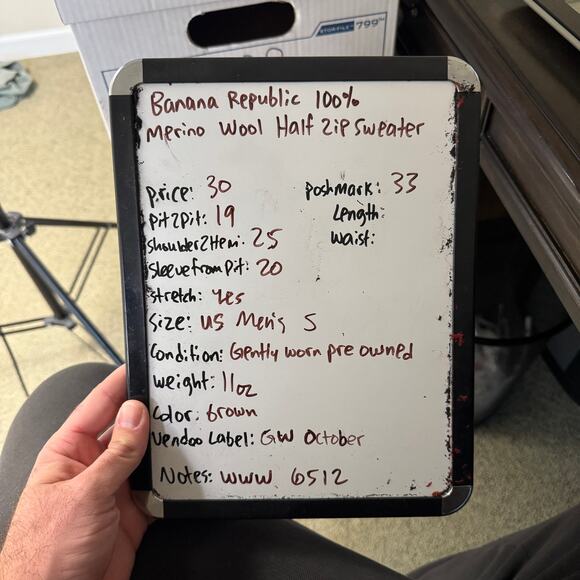 STOR/FILE™ 799
Banana Republic 100%
Merino Wool Half Zip Sweater
price: 30
poshmark: 33
pit2pit: 19
Length:
shoulder2Hem: 25
waist:
sleeve from pit: 20
stretch: yes
Size: US Men's S
Condition: Gently worn pre owned
weight: 11oz
Color: brown
Vendoo Label: GW October
Notes: www 6512